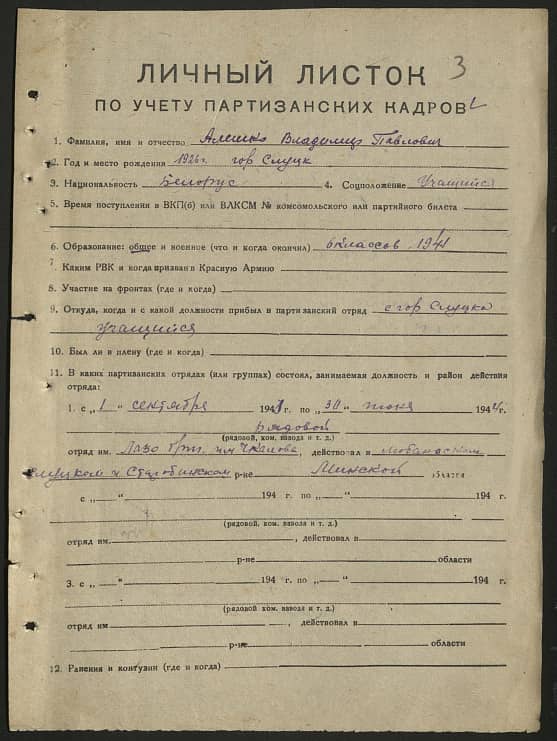 3
ЛИЧНЫЙ ЛИСТОК
ПО УЧЕТУ ПАРТИЗАНСКИХ КАДРОВ
1. Фамилия, имя и отчество Алешко Владимир Павлович
2. Год и место рождения 1926г. гор Слуцк
3. Национальность Белорус 4. Соцположение Учащийся
5. Время поступления в ВКП(б) или ВЛКСМ № комсомольского или партийного билета
6. Образование: общее и военное (что и когда окончил) 6 классов 1941
7. Каким РВК и когда призван в Красную Армию
8. Участие на фронтах (где и когда)
9. Откуда, когда и с какой должности прибыл в партизанский отряд с гор Слуцка
учащийся
10. Был ли в плену (где и когда)
11. В каких партизанских отрядах (или группах) состоял, занимаемая должность и район действия
отряда:
1. с „1" сентября 194 г. по „30" июня 1944г.
рядовой
(рядовой, ком. взвода и т. д.)
отряд им. Лазо бриг. им Чкалова, действовал в Любанском
Слуцком и Старобинском р-не Минской области
с „ " 194 г. по „ " 194
(рядовой, ком. взвода и т. д.)
отряд им. , действовал в
р-не области
3. с „ " 194 г. по „ " 194 г.
(рядовой, ком. взвода и т. д.)
отряд им , действовал в
р-не области
12. Ранения и контузии (где и когда)